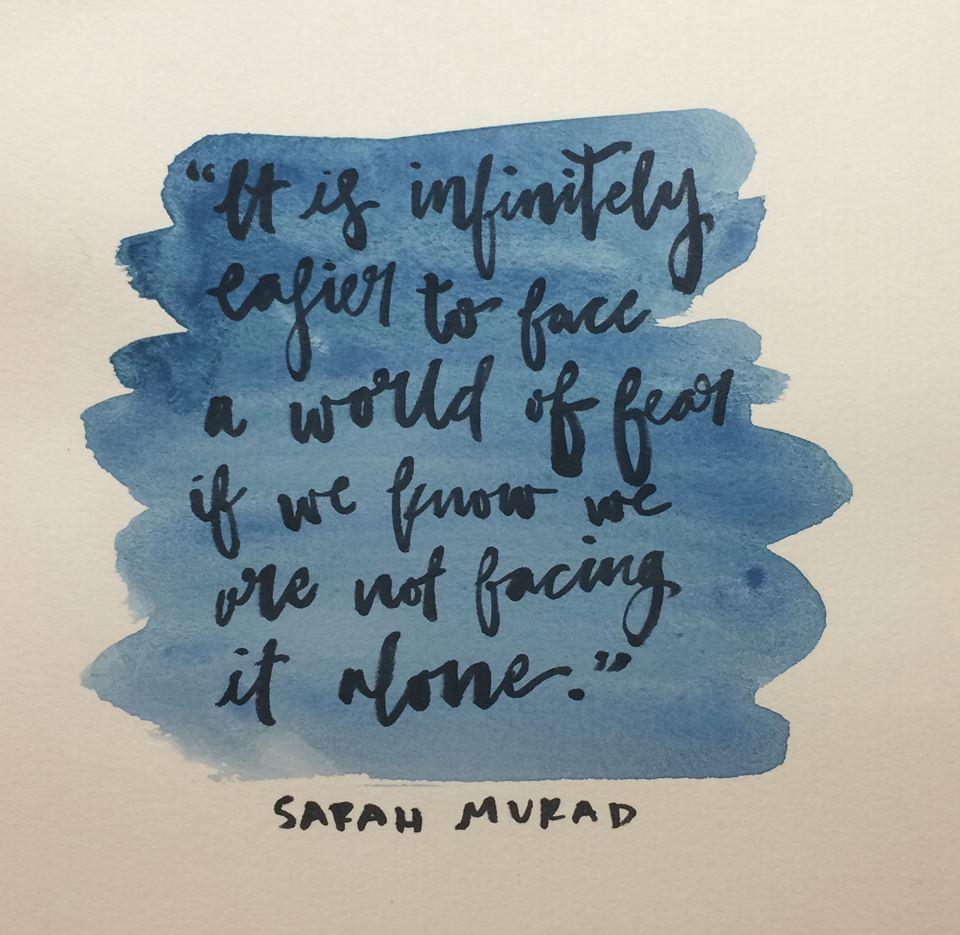 “It is infinitely
easier to face
a world of fear
if we know we
are not facing
it alone.”
SARAH MURAD